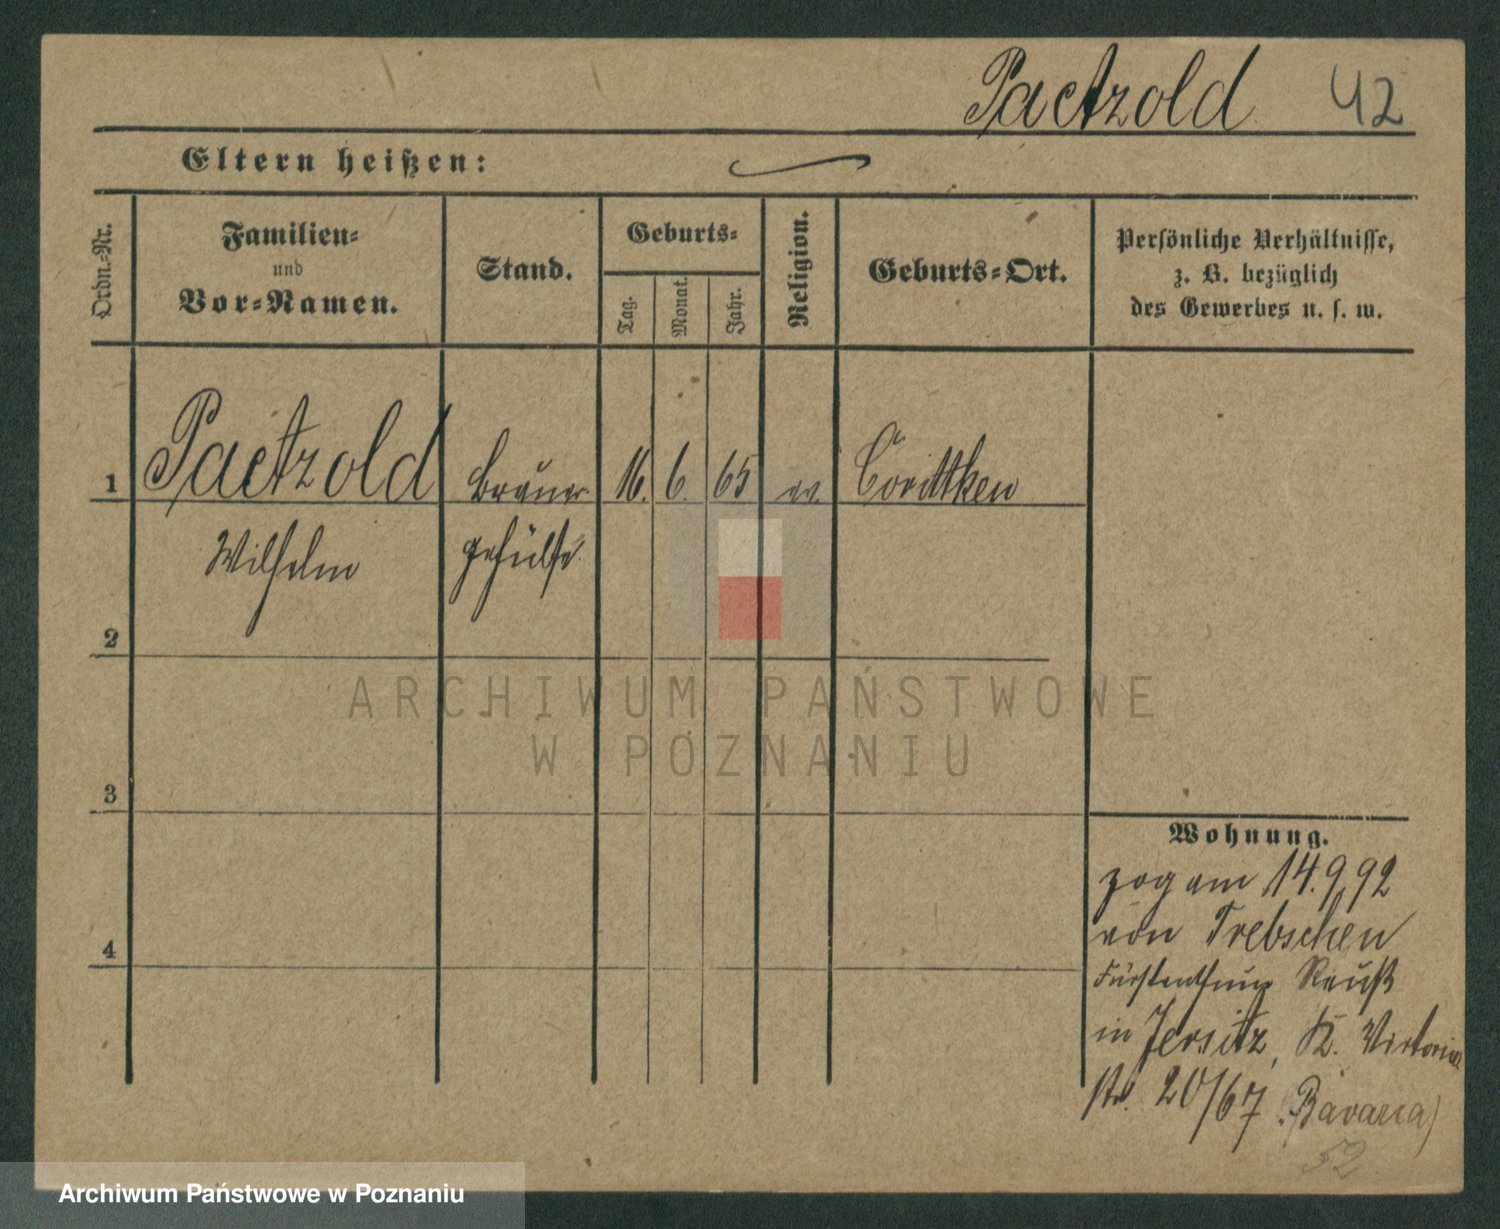 Paetzold 42
Eltern heißen:
Ordn.-Nr.
Familien-
und
Vor-Namen.
Stand.
Geburts-
Tag.
Monat.
Jahr.
Religion.
Geburts-Ort.
Persönliche Verhältnisse,
z. B. bezüglich
des Gewerbes u. s. w.
1 Paetzold Brauer 16. 6. 65 ev. Corittken
Wilhelm gehülfe
2
ARCHIWUM PAŃSTWOWE
W POZNANIU
3
Wohnung.
zog am 14.9.92
von Trebschen
4
Fürstenthum Reuß
in Jersitz, K. Victoria
str. 20/67 (Bavaria)
52
Archiwum Państwowe w Poznaniu